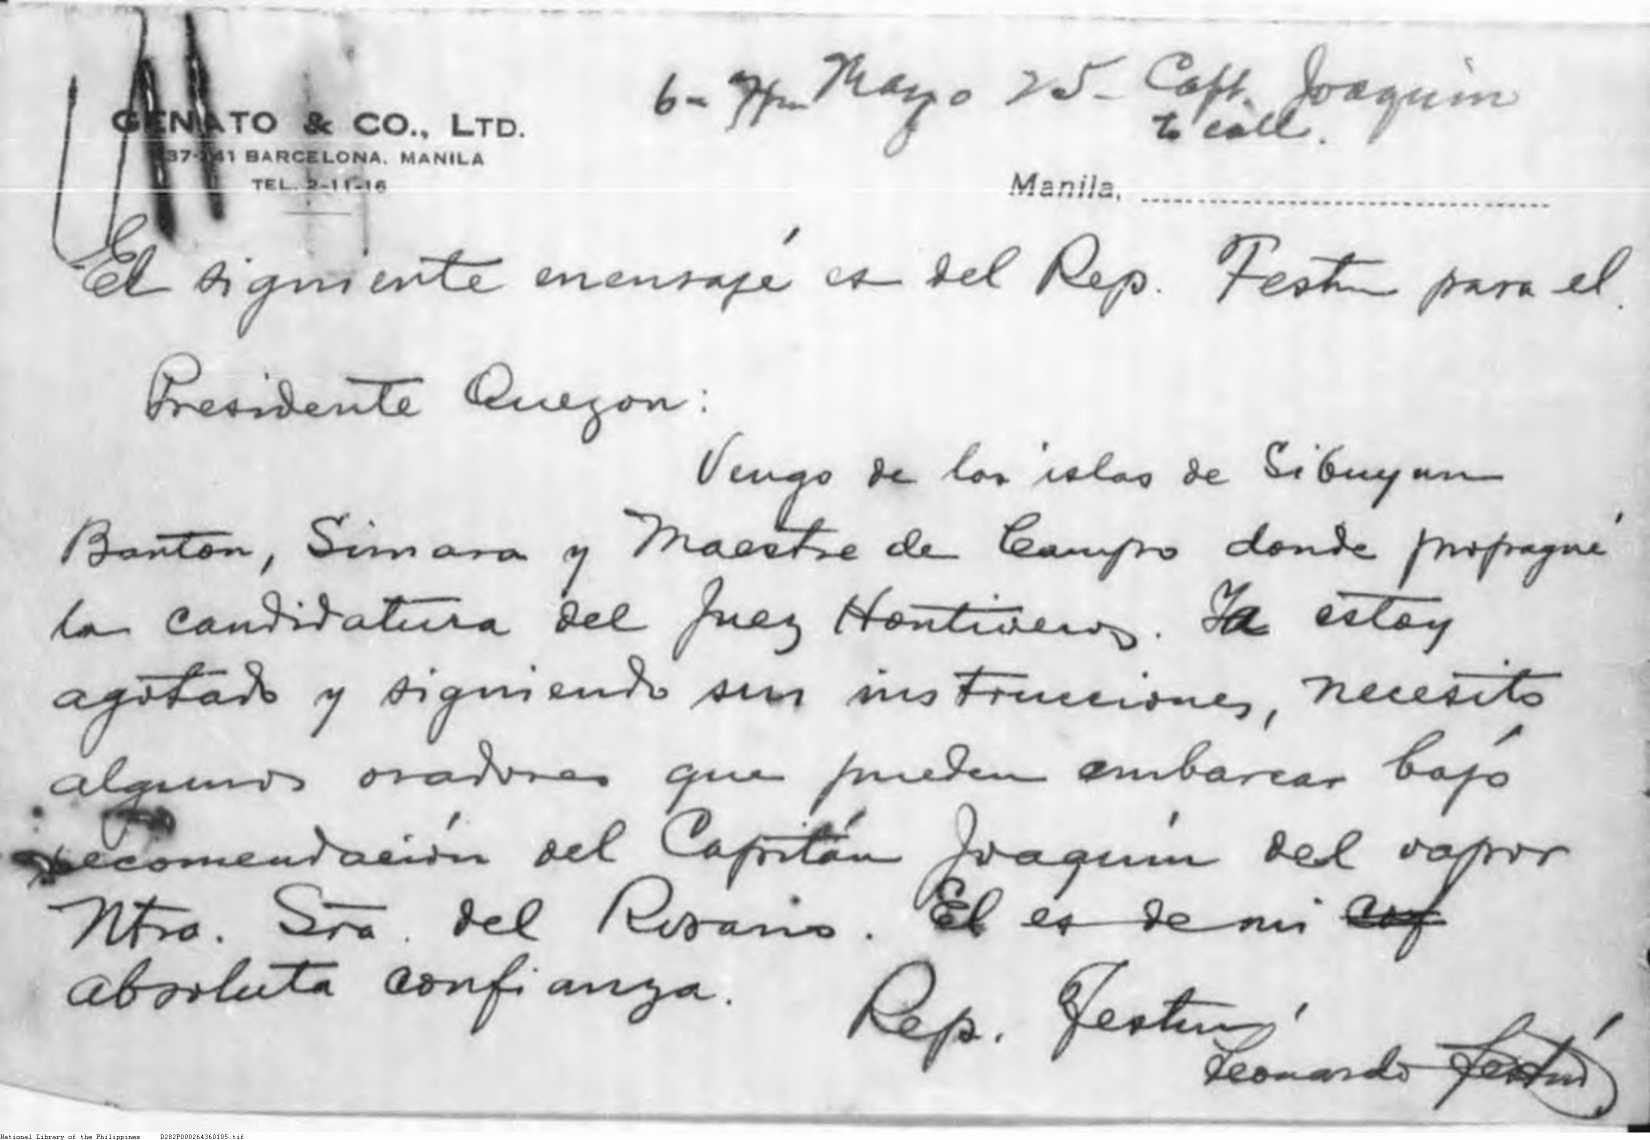 6- Mayo 25- Capt. Joaquin
to call.
GENATO & CO., LTD.
37-241 BARCELONA. MANILA
TEL. 2-11-16
Manila,
El siguiente mensajé es del Rep. Festin para el
Presidente Quezon:
Vengo de las islas de Sibuyan
Banton, Simara y Maestre de Campo donde propagué
la candidatura del Juez Hontiveros. Ya estoy
agotado y siguiendo sus instrucciones, necesito
algunos oradores que pueden embarcar bajó
recomendación del Capitán Joaquin del vapor
Ntra. Sra. del Rosario. El es de mi
absoluta confianza.
Rep. Festin
Leonardo Festin
National Library of the Philippines D282P000264360105.tif